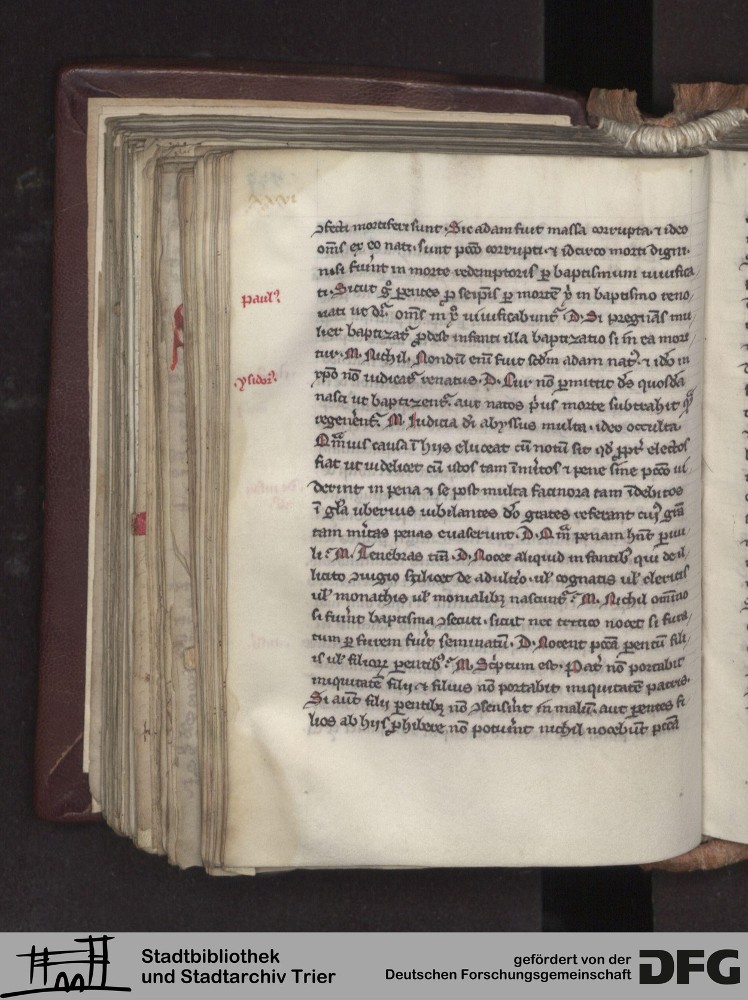 paul9
ysidor9
ꝯfecti mortiferi sunt. Sic adam fuit massa corrupta. ⁊ ideo
om̄s ex eo nati. sunt pcc̄o corrupti. ⁊ idcirco morti digni.
nisi fuer̄int in morte redemptoris ꝑ baptismum uiuifica
ti. Sicut gͦ parentes ꝓ seip̄sis ꝑ mortē xp̄i in baptismo reno
uati ut dr̄. om̄s in xp̄o uiuificabunt᷑. D. Si pregnās mu
lier baptizat᷑ ꝓdest infanti illa baptizatio si in ea mori
tur. M. Nichil. Nondū enī fuit scdm̄ adam nat9. ⁊ ido in
xp̄o nō iudicat᷑ renatus. D. Cur nō ꝑmittit ds̄ quosdā
nasci ut baptizent᷑. aut natos p̄us morte subtrahit qͣ
regener̄ent᷑. M. Iudicia dī abyssus multa. ideo occulta.
Qm̄uis causa ī hiis eluceat cū notū sit qd̄ ꝓpt̄ electos
fiat ut uidelicet cū istos tam īmīitos ⁊ pene sine pcc̄o ui
derint in pena ⁊ se post multa facinora tam īdebitos
ī gl̄a uberius iubilantes dō grates referant cui9 grā
tam mītas penas euaserunt. D. Qm̄ penam hn̄t paruu
li? M. Tenebras tm̄. D. Nocet aliquid infantib9 qui de il
licito ꝯiugio scilicet de adultīo. ul̄ cognatis ul̄ clericis
ul̄ monachis ul̄ monialibꝫ nascunt᷑? M. Nichil omīno
si fuer̄int baptisma ꝯsecuti. sicut nec tritico nocet si fura
tum ꝑ furem fuīt seminatū. D. Nocent pcc̄a parentū fili
is ul̄ filioꝝ parentib9? M. Sc̄ptum est. Pat̄ nō portabit
iniquitatē filii. ⁊ filius nō portabit iniquitatē patris.
Si aut̄ filii parentibꝫ nō ꝯsensīnt in malū. aut parentes fi
lios ab hiis ꝓhibere nō potuer̄int nichil nocebūt pcc̄a
Stadtbibliothek
und Stadtarchiv Trier
gefördert von der
Deutschen Forschungsgemeinschaft
DFG